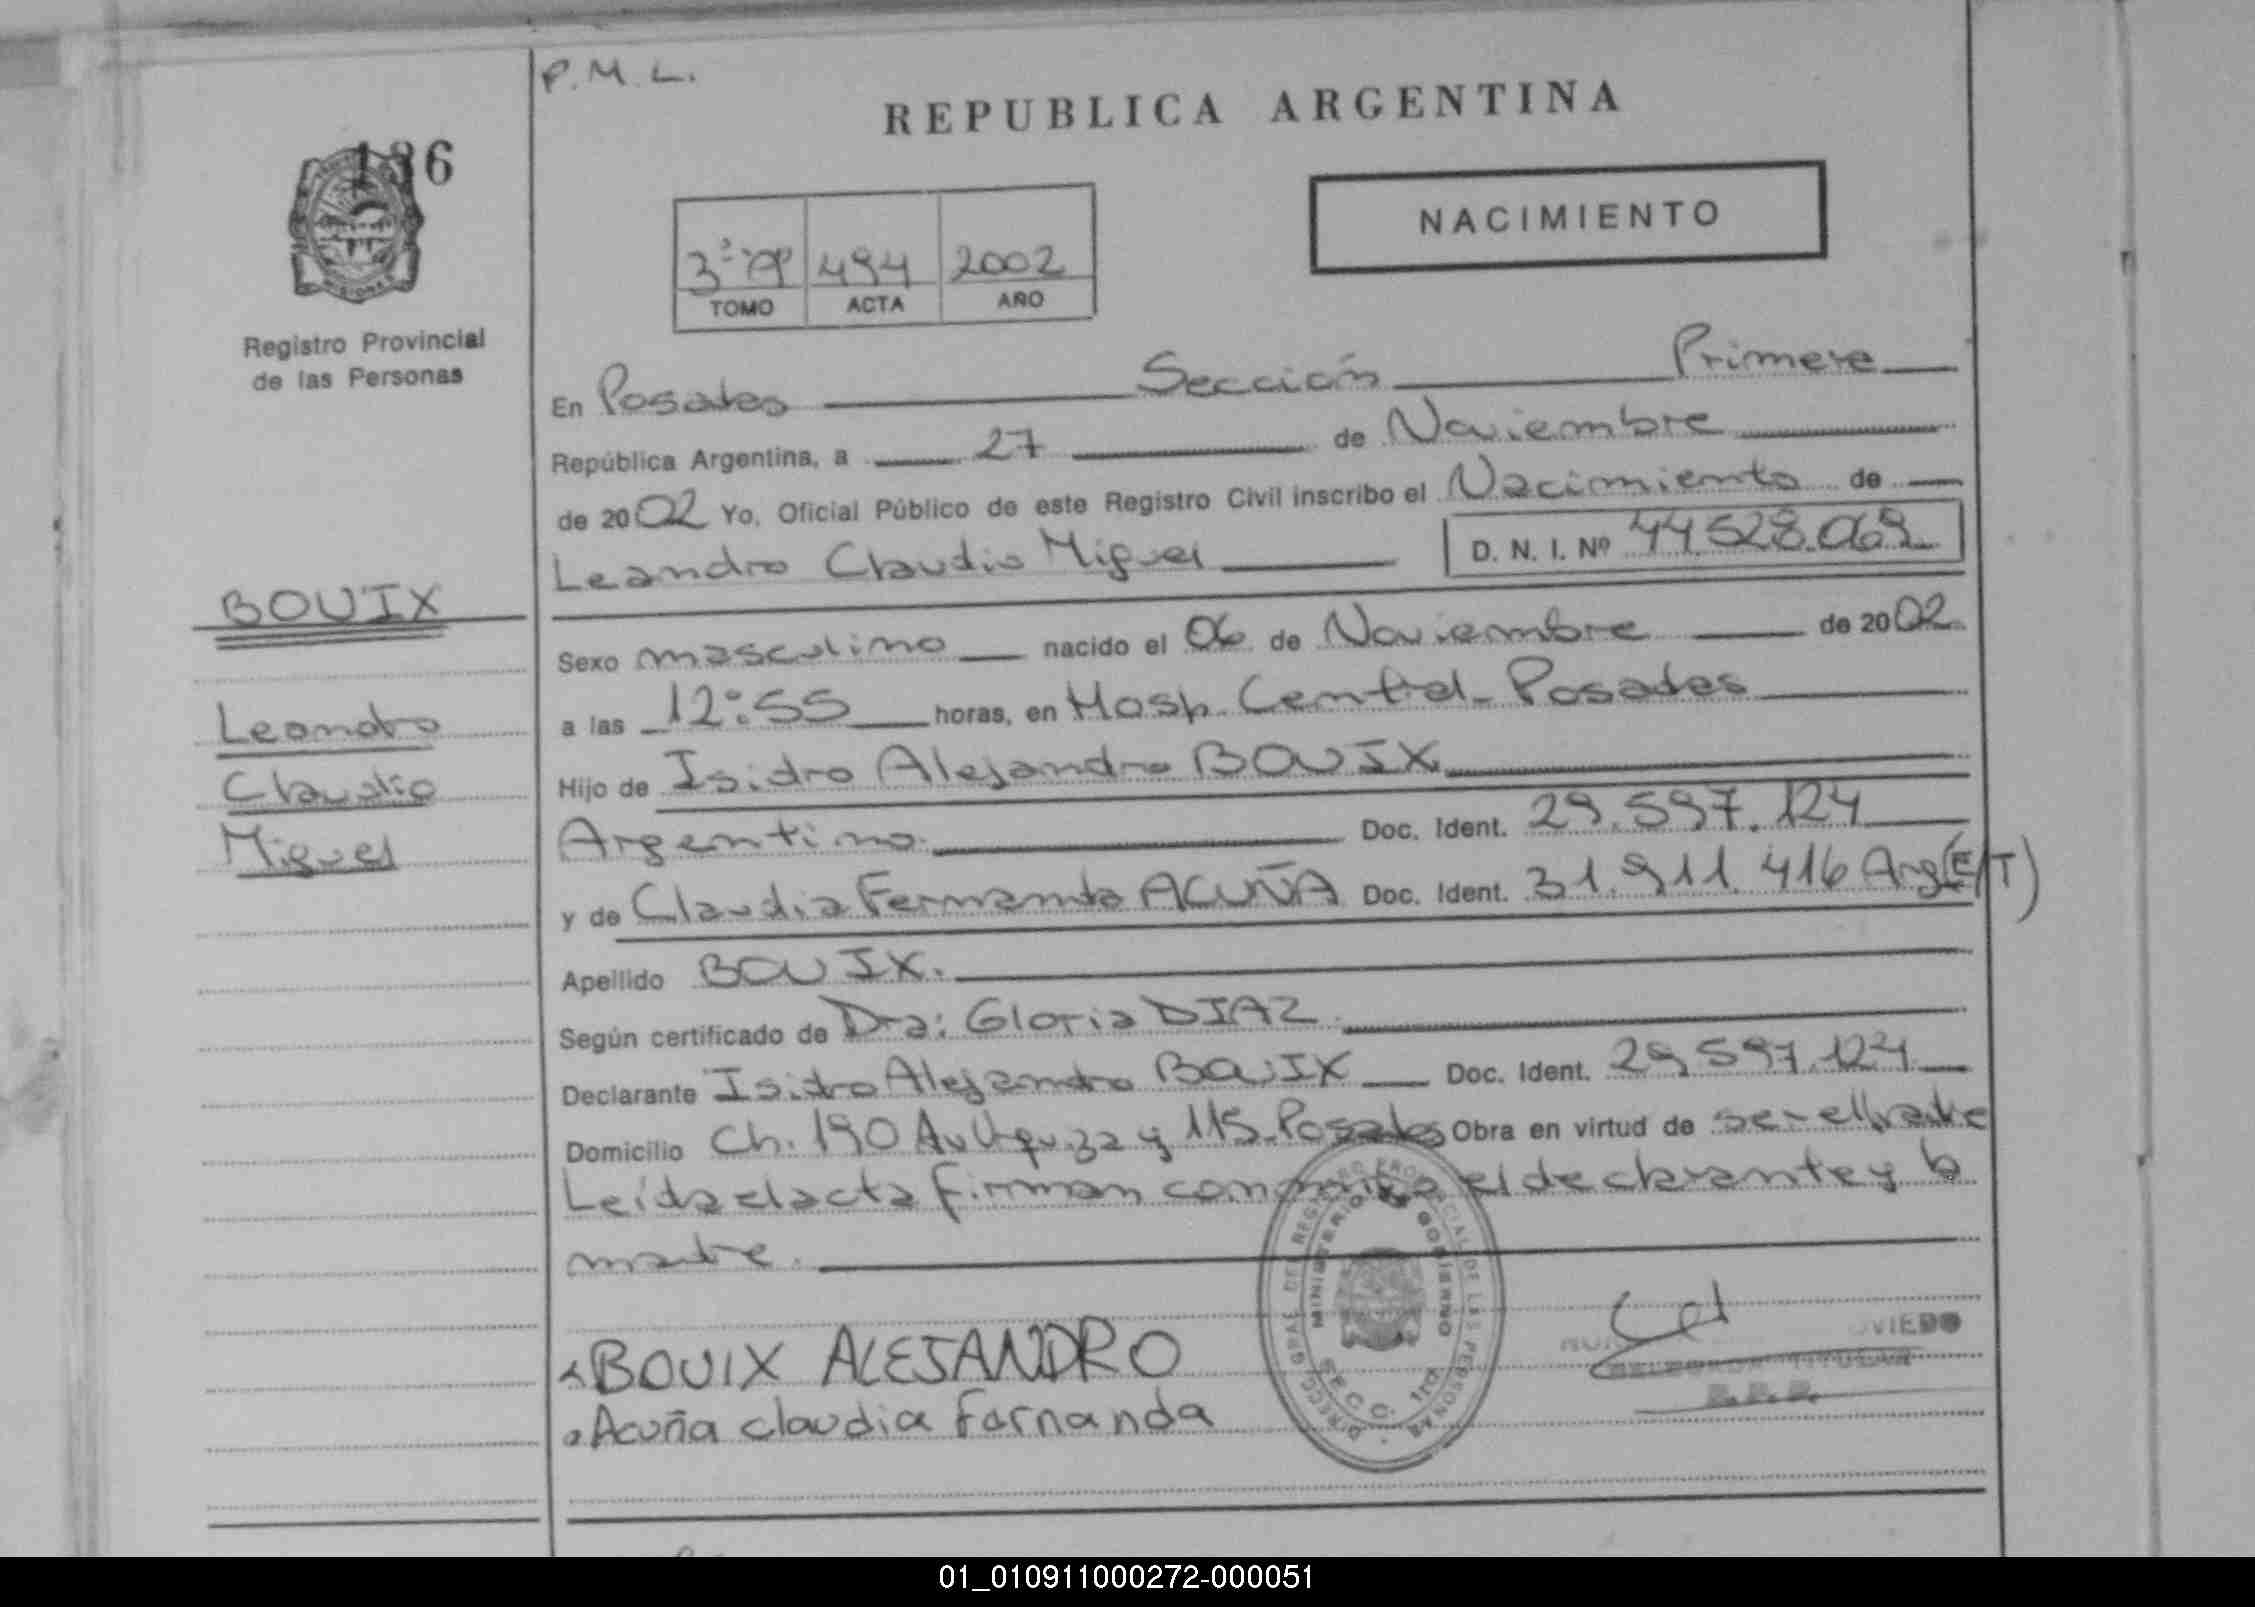 P.M.L.
REPUBLICA ARGENTINA
136
NACIMIENTO
3º 494 2002
TOMO ACTA AÑO
Registro Provincial
de las Personas
En Posadas Sección Primera
República Argentina, a 27 de Noviembre
de 2002 Yo, Oficial Público de este Registro Civil inscribo el Nacimiento de
Leandro Claudio Miguel D. N. I. Nº 44.528.069
BOUIX
Sexo masculino nacido el 06 de Noviembre de 2002
Leandro
a las 12:55 horas, en Hosp. Central - Posadas
Claudio
Hijo de Isidro Alejandro BOUIX
Miguel
Argentino. Doc. Ident. 29.597.124
y de Claudia Fernanda ACUÑA Doc. Ident. 31.911.416 Arg(E/T)
Apellido BOUIX.
Según certificado de Dra: Gloria DIAZ.
Declarante Isidro Alejandro BOUIX Doc. Ident. 29.597.124
Domicilio Ch. 190 Av Urquiza y 115 - Posadas Obra en virtud de ser el padre
Leída el acta firman conmigo el declarante y la
madre.
DIRECC. GRAL. DEL REGISTRO PROVINCIAL DE LAS PERSONAS
MINISTERIO DE GOBIERNO
SECC. 1ra
BOUIX ALEJANDRO
Acuña claudia Fernanda
OVIEDO
TITULAR
01_010911000272-000051